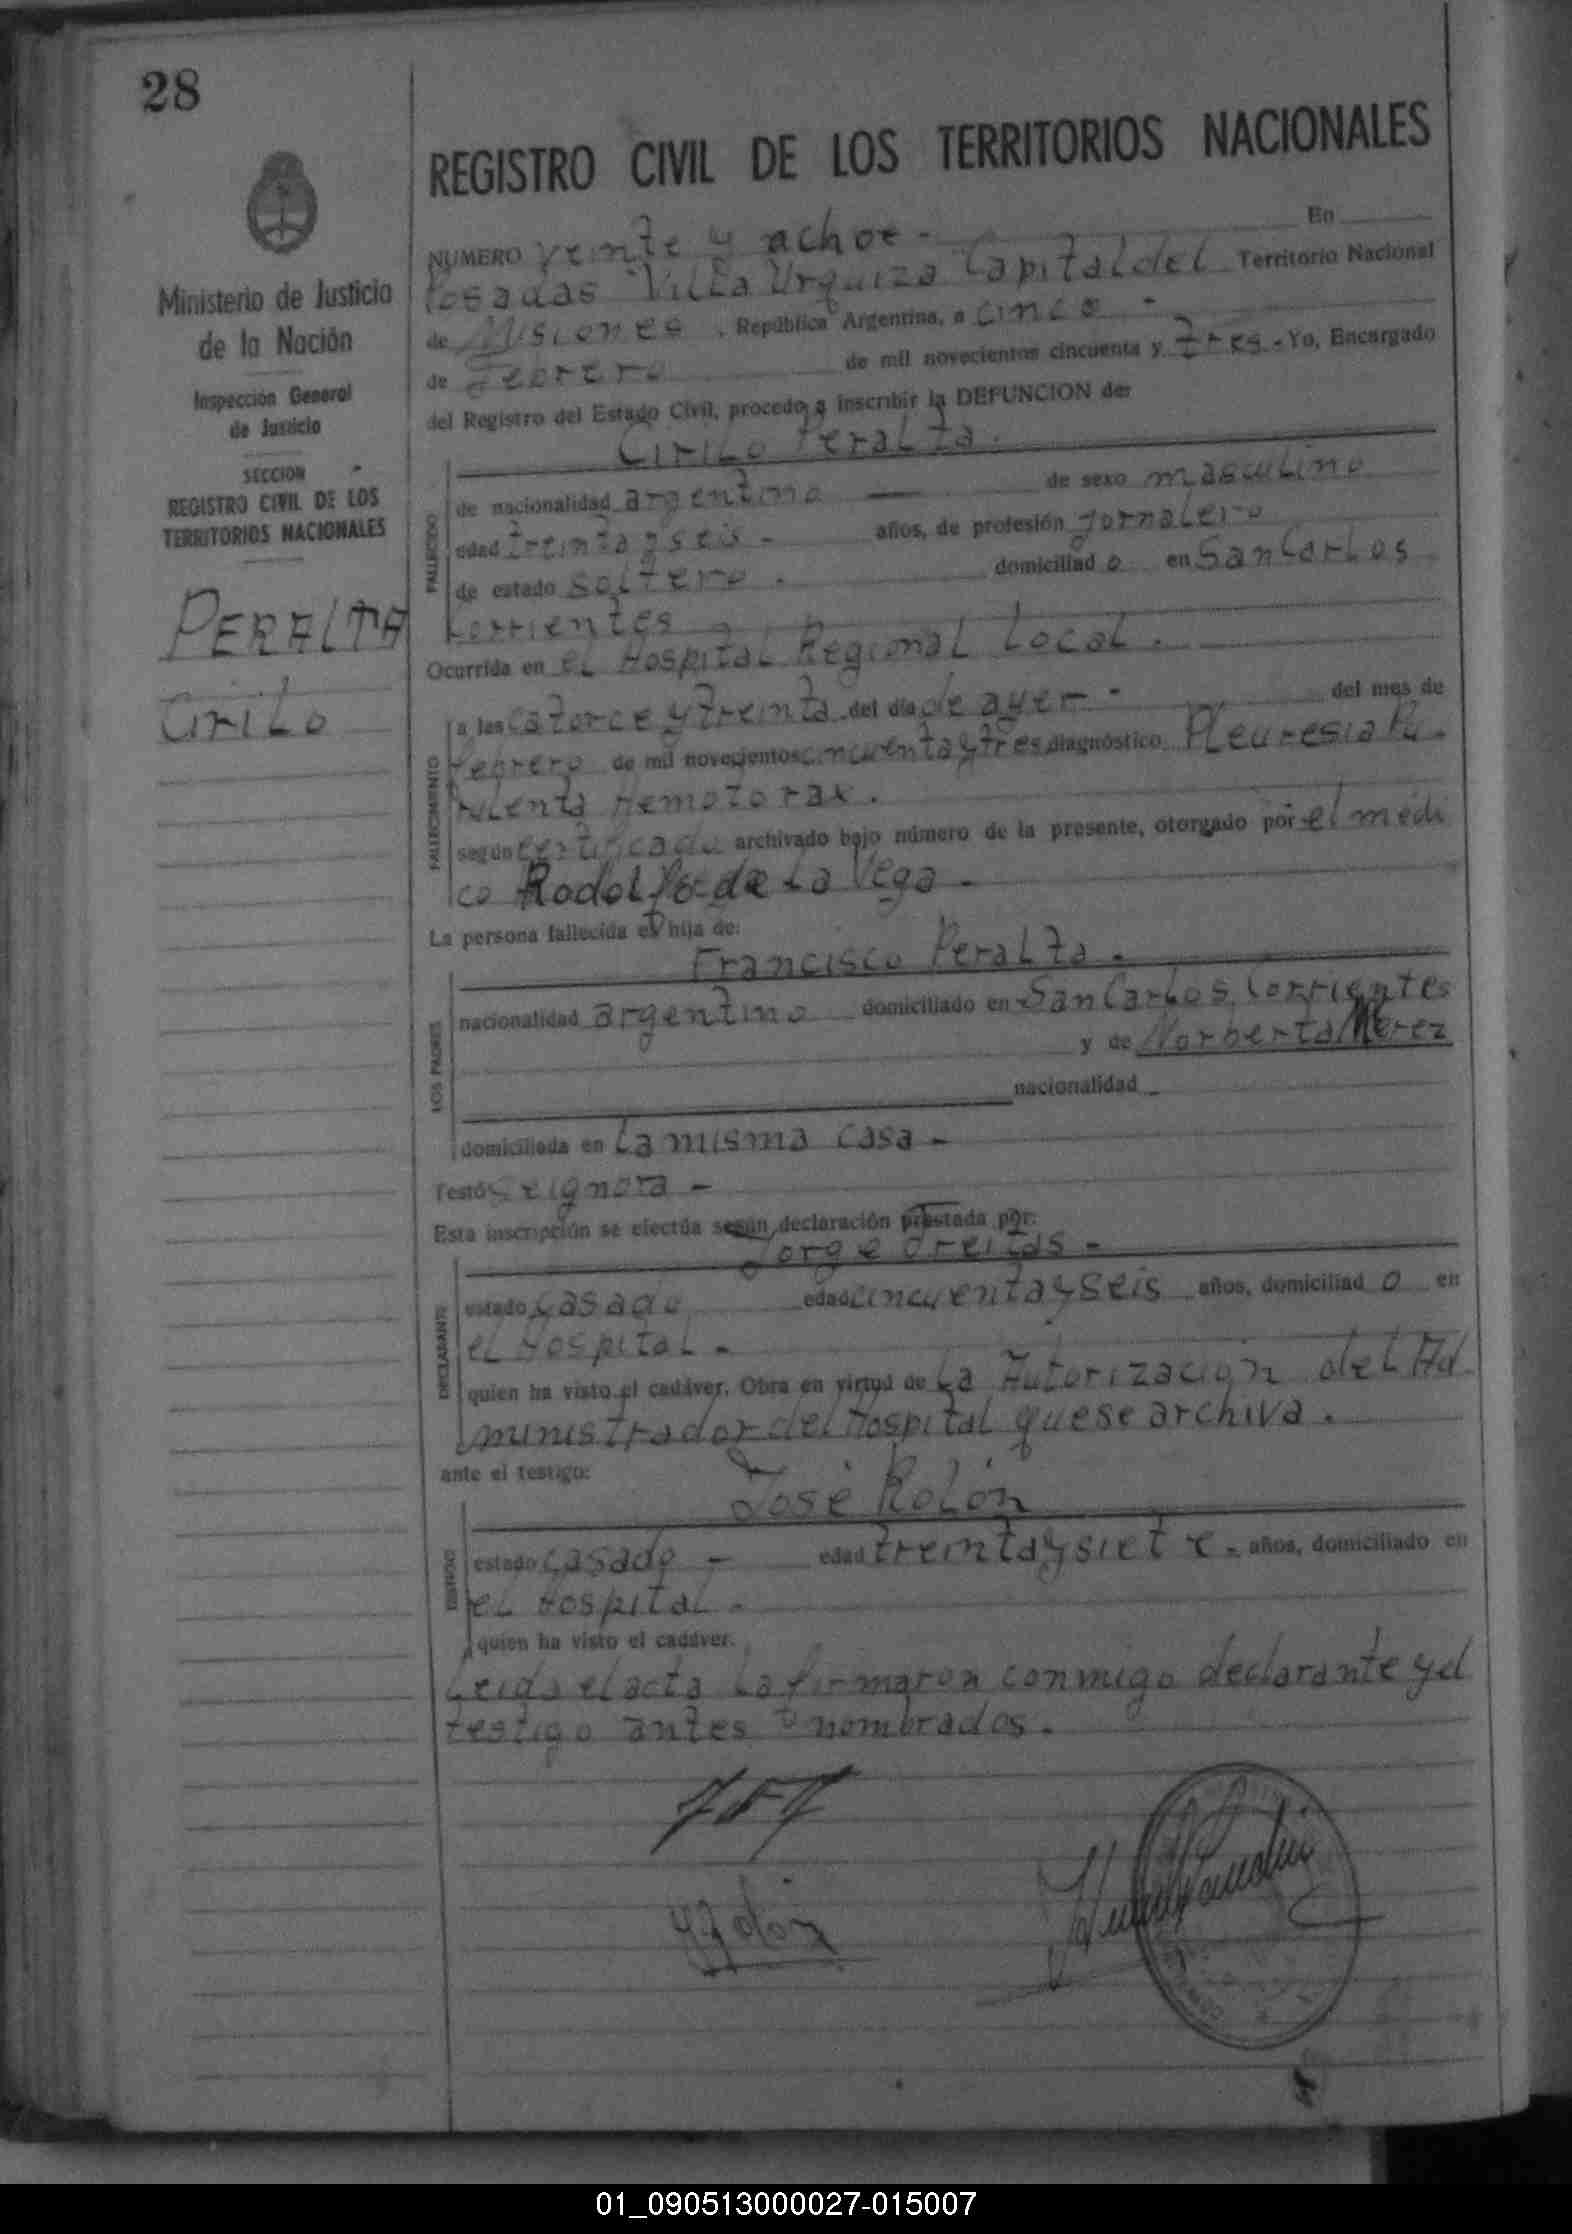 28
REGISTRO CIVIL DE LOS TERRITORIOS NACIONALES
Ministerio de Justicia
de la Nación
Inspección General
de Justicia
SECCION
REGISTRO CIVIL DE LOS
TERRITORIOS NACIONALES
PERALTA
Cirilo
NUMERO veinte y achoe.- En
Posadas Villa Urquiza Capital del Territorio Nacional
de Misiones, República Argentina, a cinco -
de Febrero de mil novecientos cincuenta y tres.- Yo, Encargado
del Registro del Estado Civil, procedo a inscribir la DEFUNCION de:
Cirilo Peralta.
FALLECIDO
de nacionalidad argentino — de sexo masculino
edad treinta y seis - años, de profesión jornalero
de estado soltero. domiciliado en San Carlos
Corrientes
Ocurrida en el Hospital Regional Local.
FALLECIMIENTO
a las catorce y treinta del día de ayer - del mes de
febrero de mil novecientos cincuenta y tres diagnóstico Pleuresia Pu-
rulenta Hemotorax.
según certificado archivado bajo número de la presente, otorgado por el médi
co Rodolfo de La Vega -
La persona fallecida es hija de:
Francisco Peralta.
LOS PADRES
nacionalidad argentino domiciliado en San Carlos Corrientes
y de Norberta
nacionalidad
domiciliada en La misma casa -
Testó se ignora -
Esta inscripción se efectúa según declaración prestada por:
Jorge Freitas -
DECLARANTE
estado casado edad cincuenta y seis años, domiciliado en
el Hospital -
quien ha visto el cadáver. Obra en virtud de La Autorización del Ad-
ministrador del Hospital que se archiva.
ante el testigo:
José Rolón
TESTIGO
estado casado - edad treinta y siete.- años, domiciliado en
el Hospital -
quien ha visto el cadáver.
Leida el acta La firmaron conmigo declarante y el
testigo antes nombrados.
01_090513000027-015007